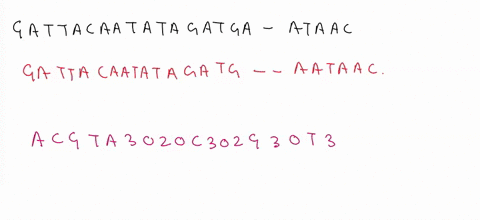 GATTACAATATAGATGA - ATAAC
GATTACAATATAGATG -- AATAAC.
ACGTA3020C302G30T3